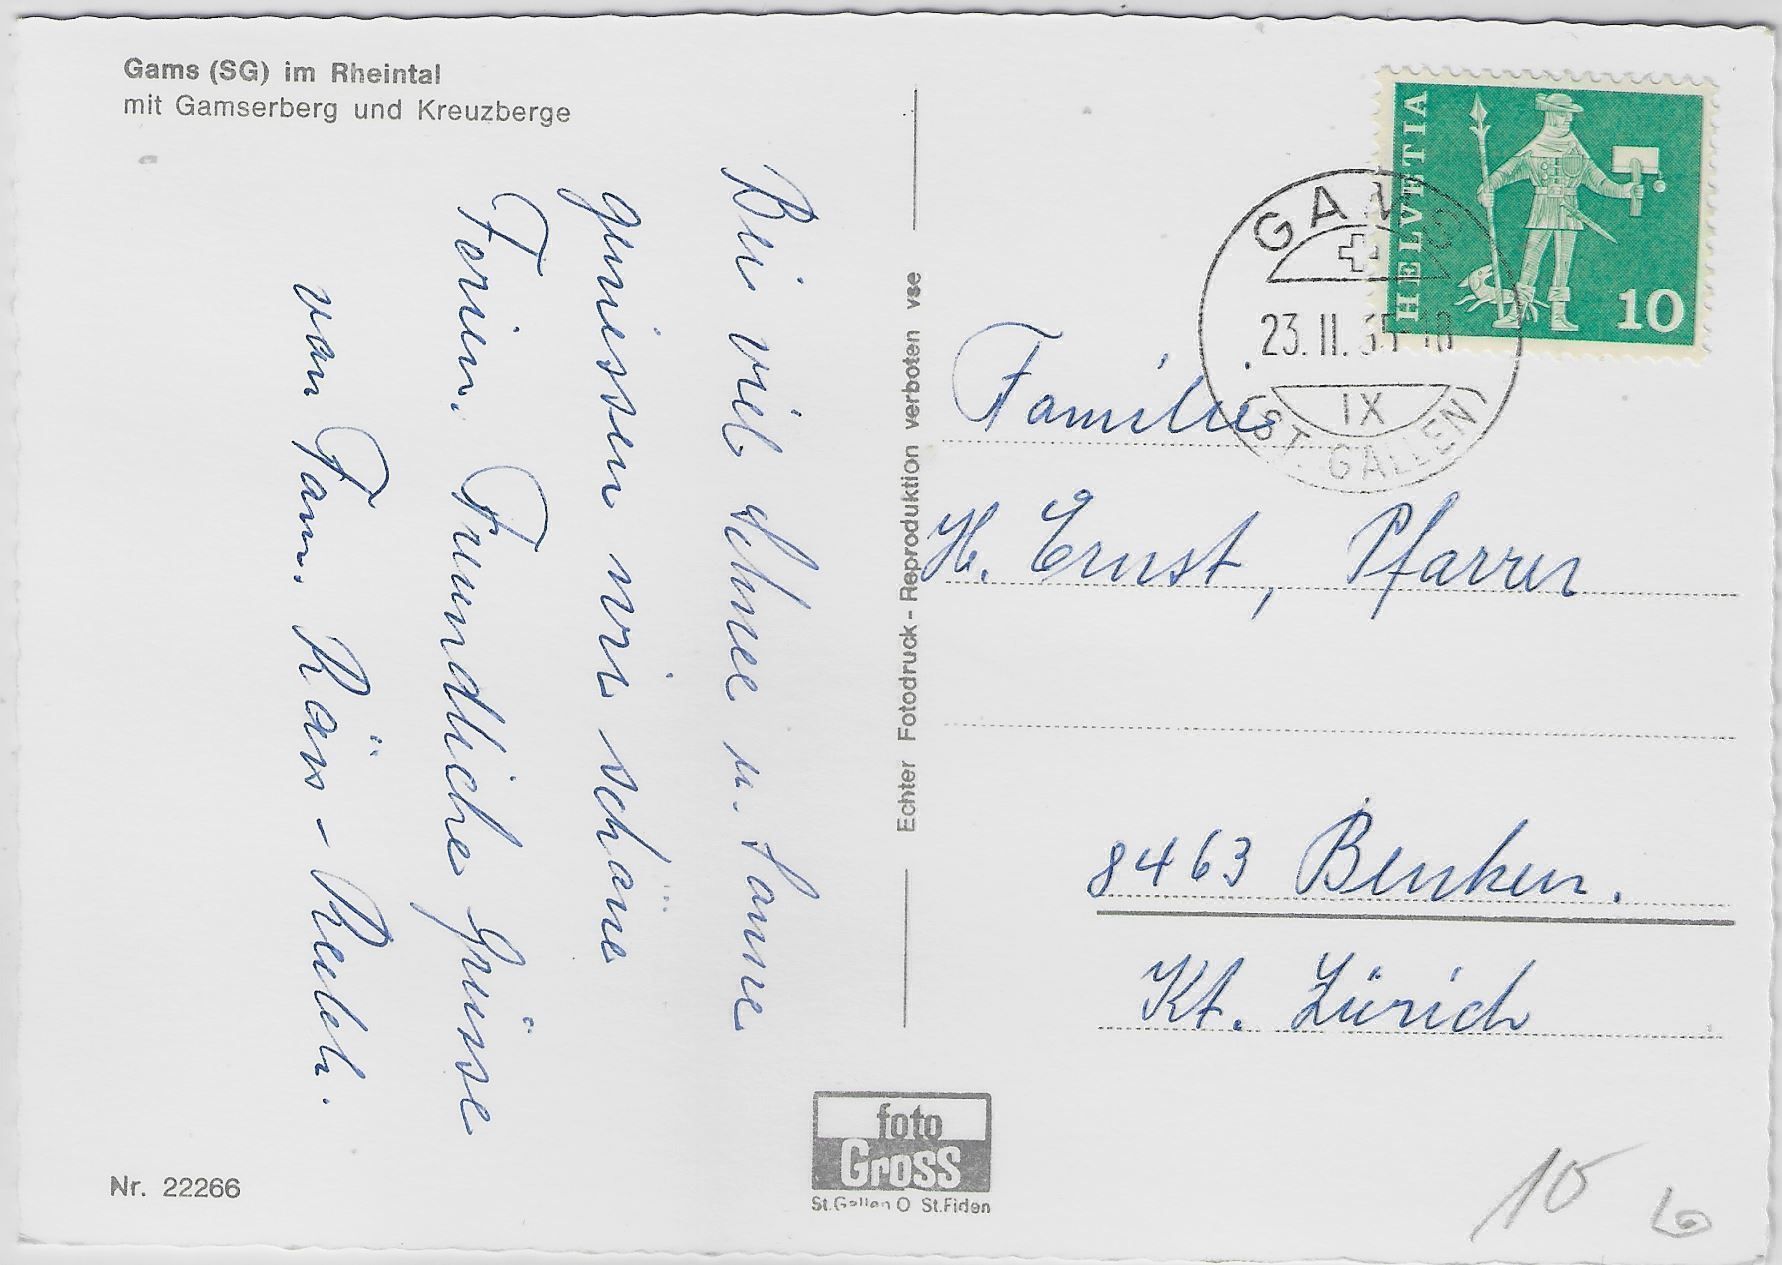 Gams (SG) im Rheintal
mit Gamserberg und Kreuzberge
Bei viel Schnee u. Sonne
geniessen wir schöne
Ferien. Freundliche Grüsse
von Fam. Räss -
Nr. 22266
Echter Fotodruck - Reproduktion verboten vse
foto
Gross
St.Gallen O St.Fiden
HELVETIA
10
GAMS
23. II.
IX
(ST. GALLEN)
Familie
H. Ernst, Pfarrer
8463 Benken.
Kt. Zürich
10